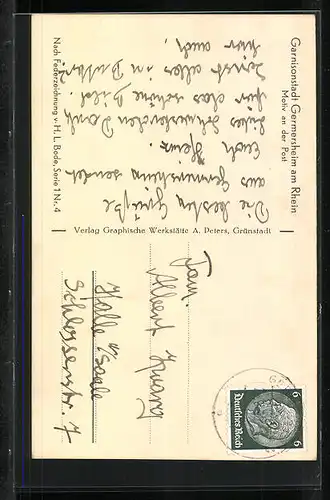 Garnisonstadt Germersheim am Rhein
Motiv an der Post
Die besten Grüße
aus Germersheim sendet
Euch Heinz.
für das schöne Bild.
Sonst alles in Butter
hier auch.
Nach Federzeichnung v. H. L. Bode, Serie 1 Nr. 4
Verlag Graphische Werkstätte A. Peters, Grünstadt
Fam.
Albert
Halle / Saale
Schlosserstr. 7
Deutsches Reich
6 6